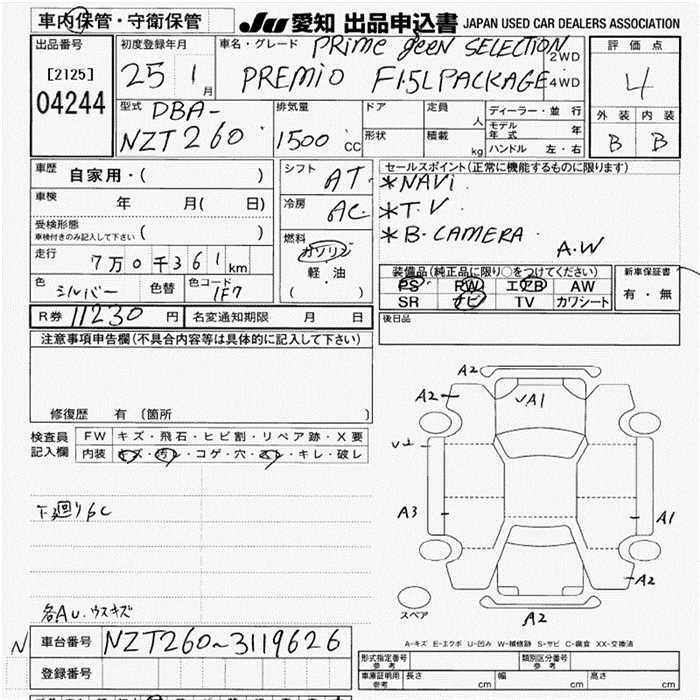 車内保管・守衛保管
JU 愛知 出品申込書 JAPAN USED CAR DEALERS ASSOCIATION
出品番号
[2125]
04244
初度登録年月
25 1月
車名・グレード
PRime geen SELECTION
PREMIO F1.5L PACKAGE
2WD
4WD
評価点
4
外装 内装
B B
型式
DBA-
NZT260
排気量
1500 CC
ドア
形状
定員 人
積載 kg
ディーラー・並行
モデル年式 年
ハンドル 左・右
車歴 自家用・( )
車検 年 月( 日)
受検形態
車検付きのみ記入して下さい ( )
走行
7万0千361km
色 シルバー 色替 色コード 1F7
シフト AT
冷房 AC
燃料
ガソリン
軽・油
( )
セールスポイント(正常に機能するものに限ります)
*NAVi
*T.V
*B.CAMERA
A.W
装備品(純正品に限り○をつけてください)
PS PW エアB AW
SR ナビ TV カワシート
新車保証書
有・無
R券 11230 円 名変通知期限 月 日
後日品
注意事項申告欄(不具合内容等は具体的に記入して下さい)
修復歴 有 (箇所 )
検査員記入欄
FW キズ・飛石・ヒビ割・リペア跡・X要
内装 キズ・汚レ・コゲ・穴・スレ・キレ・破レ
下廻りSC
各AU.ウスキズ
A2
A2
A1
A3
A1
A2
A2
スペア
N
車台番号 NZT260~3119626
登録番号
A-キズ E-エクボ U-凹み W-補修跡 S-サビ C-腐食 XX-交換済
形式指定番号 参考
類別区分番号 参考
車庫証明用 参考 長さ cm 幅 cm 高さ cm